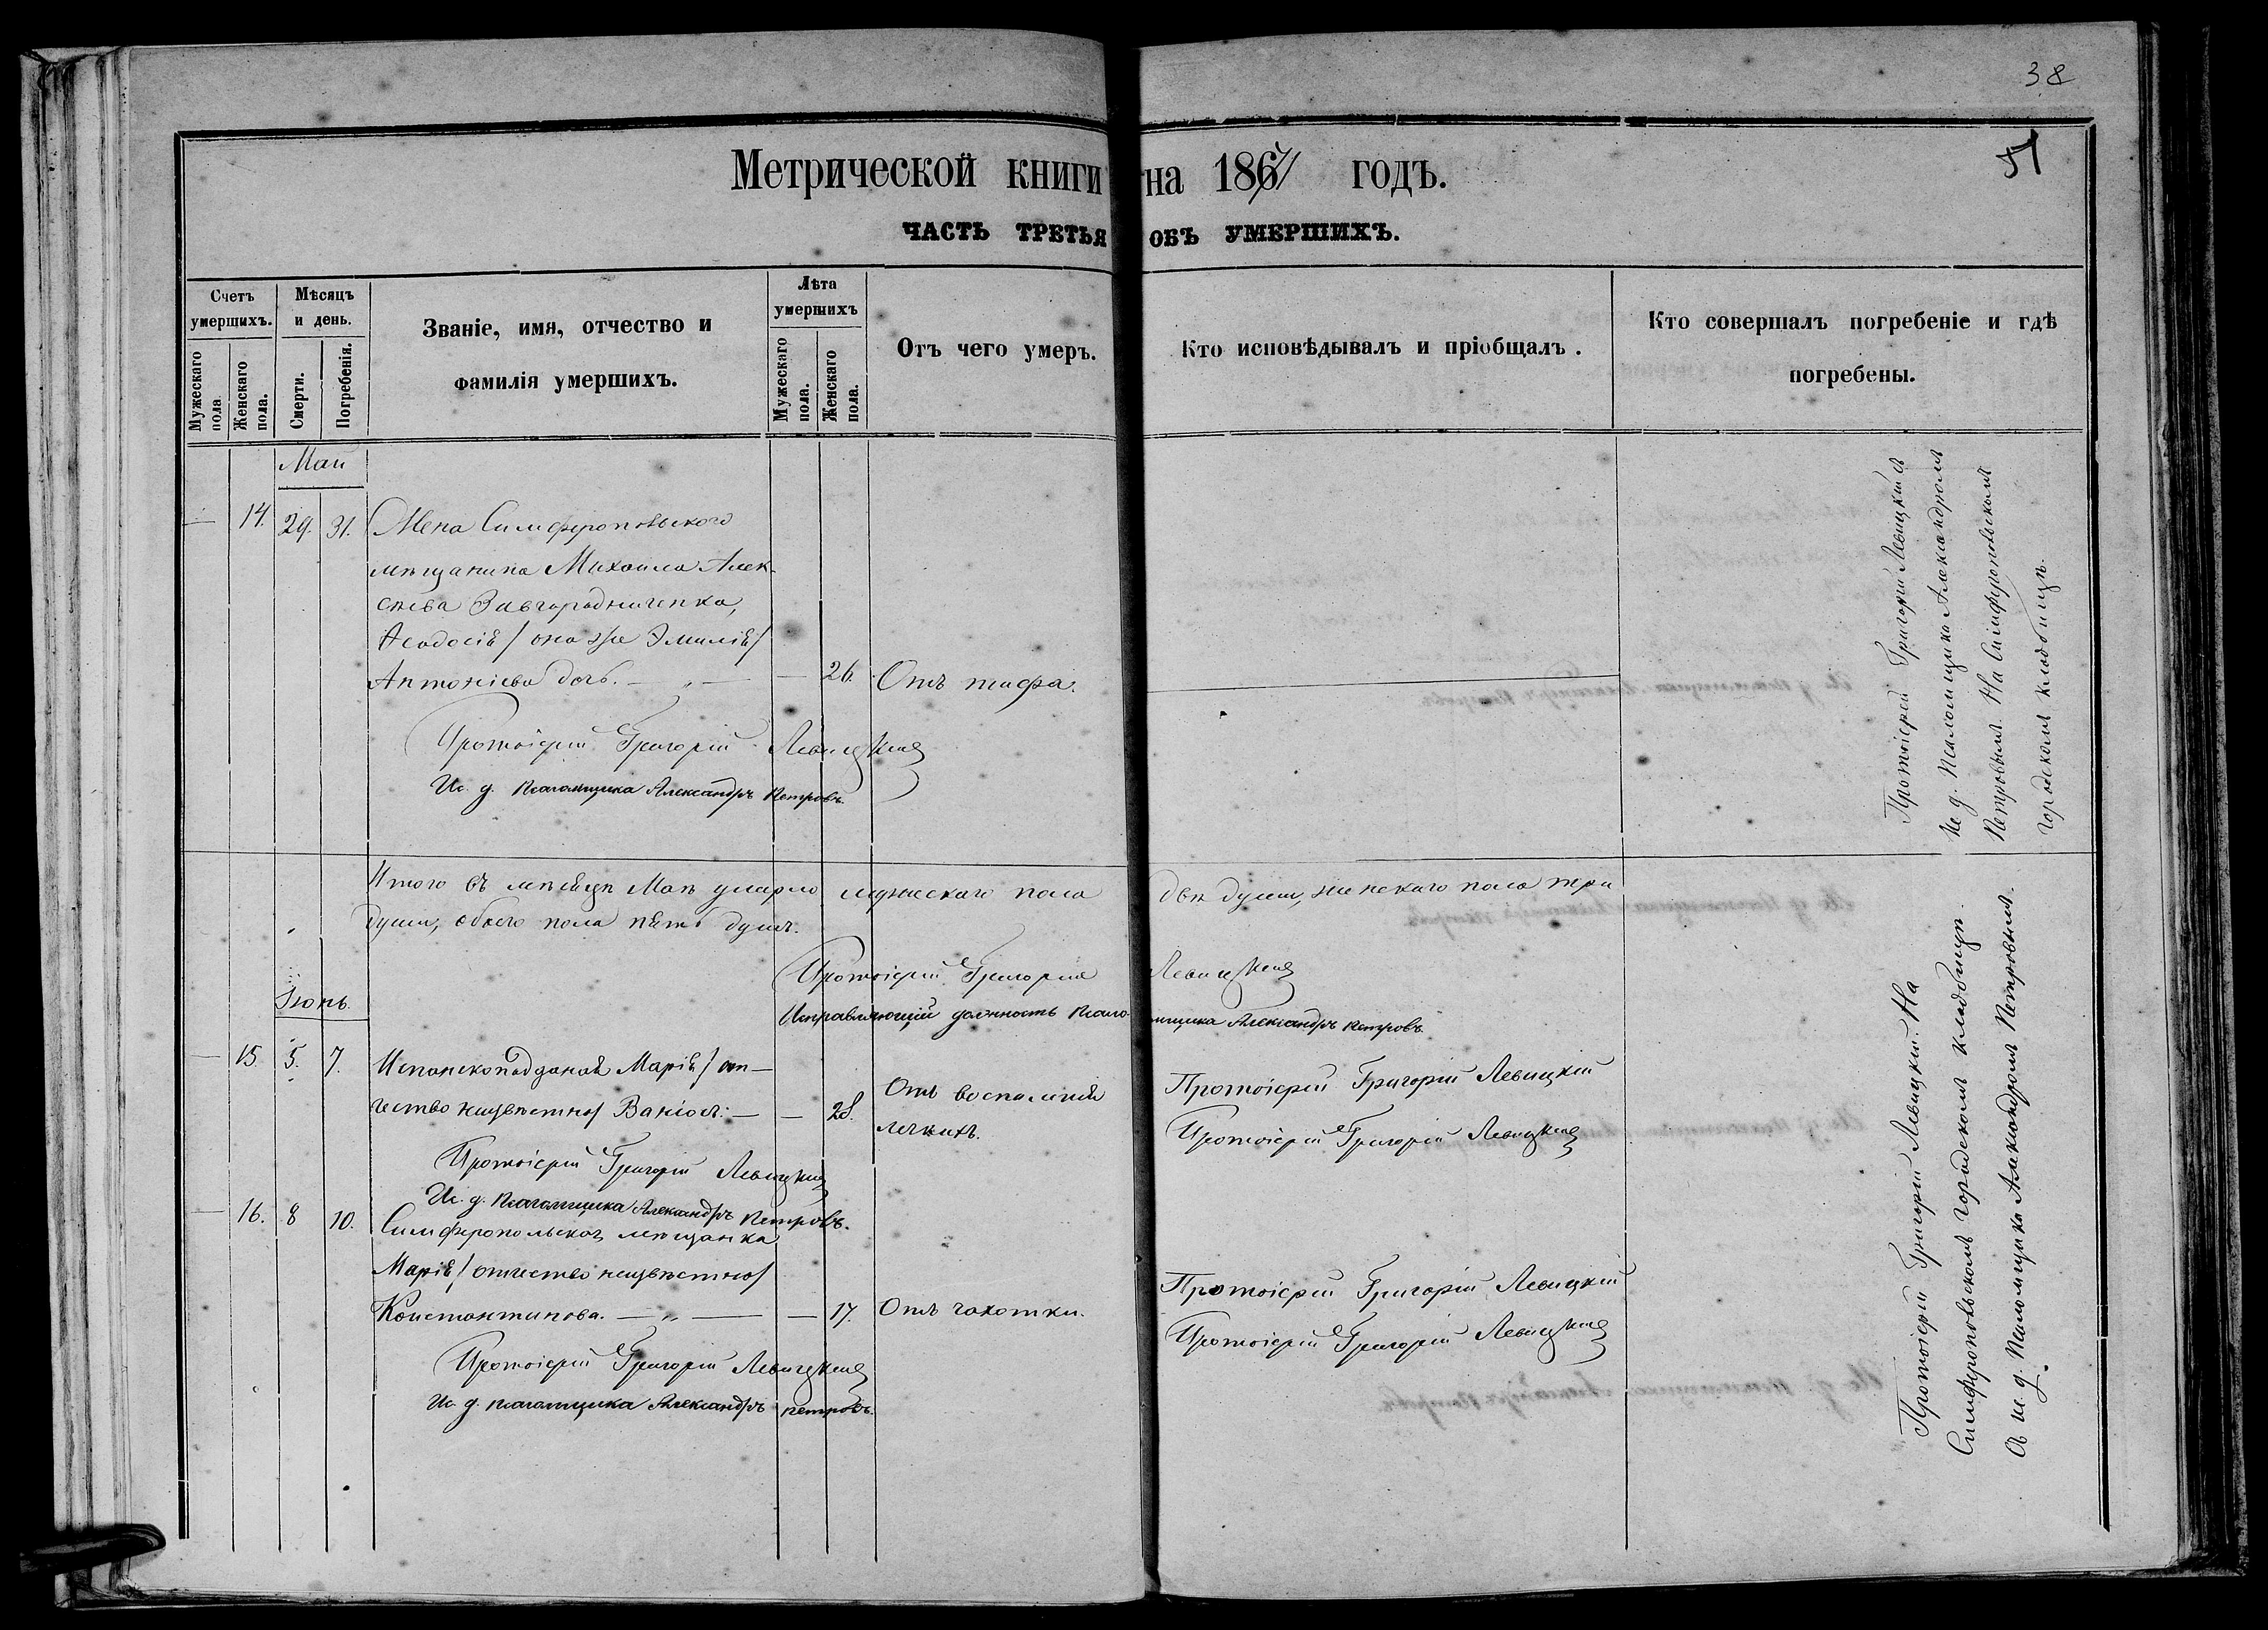 38
51
Метрической книги на 1867 годъ.
ЧАСТЬ ТРЕТЬЯ ОБЪ УМЕРШИХЪ.
Счетъ умершихъ.
Мужескаго пола
Женскаго пола.
Мѣсяцъ и день.
Смерти.
Погребенія.
Званіе, имя, отчество и
фамилія умершихъ.
Лѣта умершихъ
Мужескаго пола.
Женскаго пола.
Отъ чего умеръ.
Кто исповѣдывалъ и пріобщалъ.
Кто совершалъ погребеніе и гдѣ
погребены.
Май
— 14. 29. 31. Жена Симферопольскаго
мѣщанина Михаила Алек-
сѣева Завгородниченка,
Ѳеодосія /она же Эмилія/
Антоніева дочь. — „ — — 26. Отъ тифа.
Протоіерей Григорій Левицкій
Ис. д. псаломщика Александръ Петровъ.
Протоіерей Григорій Левицкій съ
ис. д. псаломщика Александромъ
Петровымъ. На Симферопольскомъ
городскомъ кладбищѣ.
Итого въ мѣсяцѣ Маѣ умерло мужескаго пола двѣ души, женскаго пола три
души, обоего пола пять душъ.
Протоіерей Григорій Левицкій
Исправляющій должность псаломщика Александръ Петровъ.
Іюнь.
— 15. 5. 7. Испанскоподданая Марія /от-
чество неизвѣстно/ Ваніолъ: — — 28. Отъ воспаленія
легкихъ.
Протоіерей Григорій Левицкій
Протоіерей Григорій Левицкій
Протоіерей Григорій Левицкій
Ис. д. псаломщика Александръ Петровъ.
— 16. 8 10. Симферопольская мѣщанка
Марія /отчество неизвѣстно/
Константинова. — „ — — 17. Отъ чахотки.
Протоіерей Григорій Левицкій
Протоіерей Григорій Левицкій
Протоіерей Григорій Левицкій
Ис. д. псаломщика Александръ Петровъ.
Протоіерей Григорій Левицкій. На
Симферопольскомъ городскомъ кладбищѣ.
Съ ис. д. псаломщика Александромъ Петровымъ.